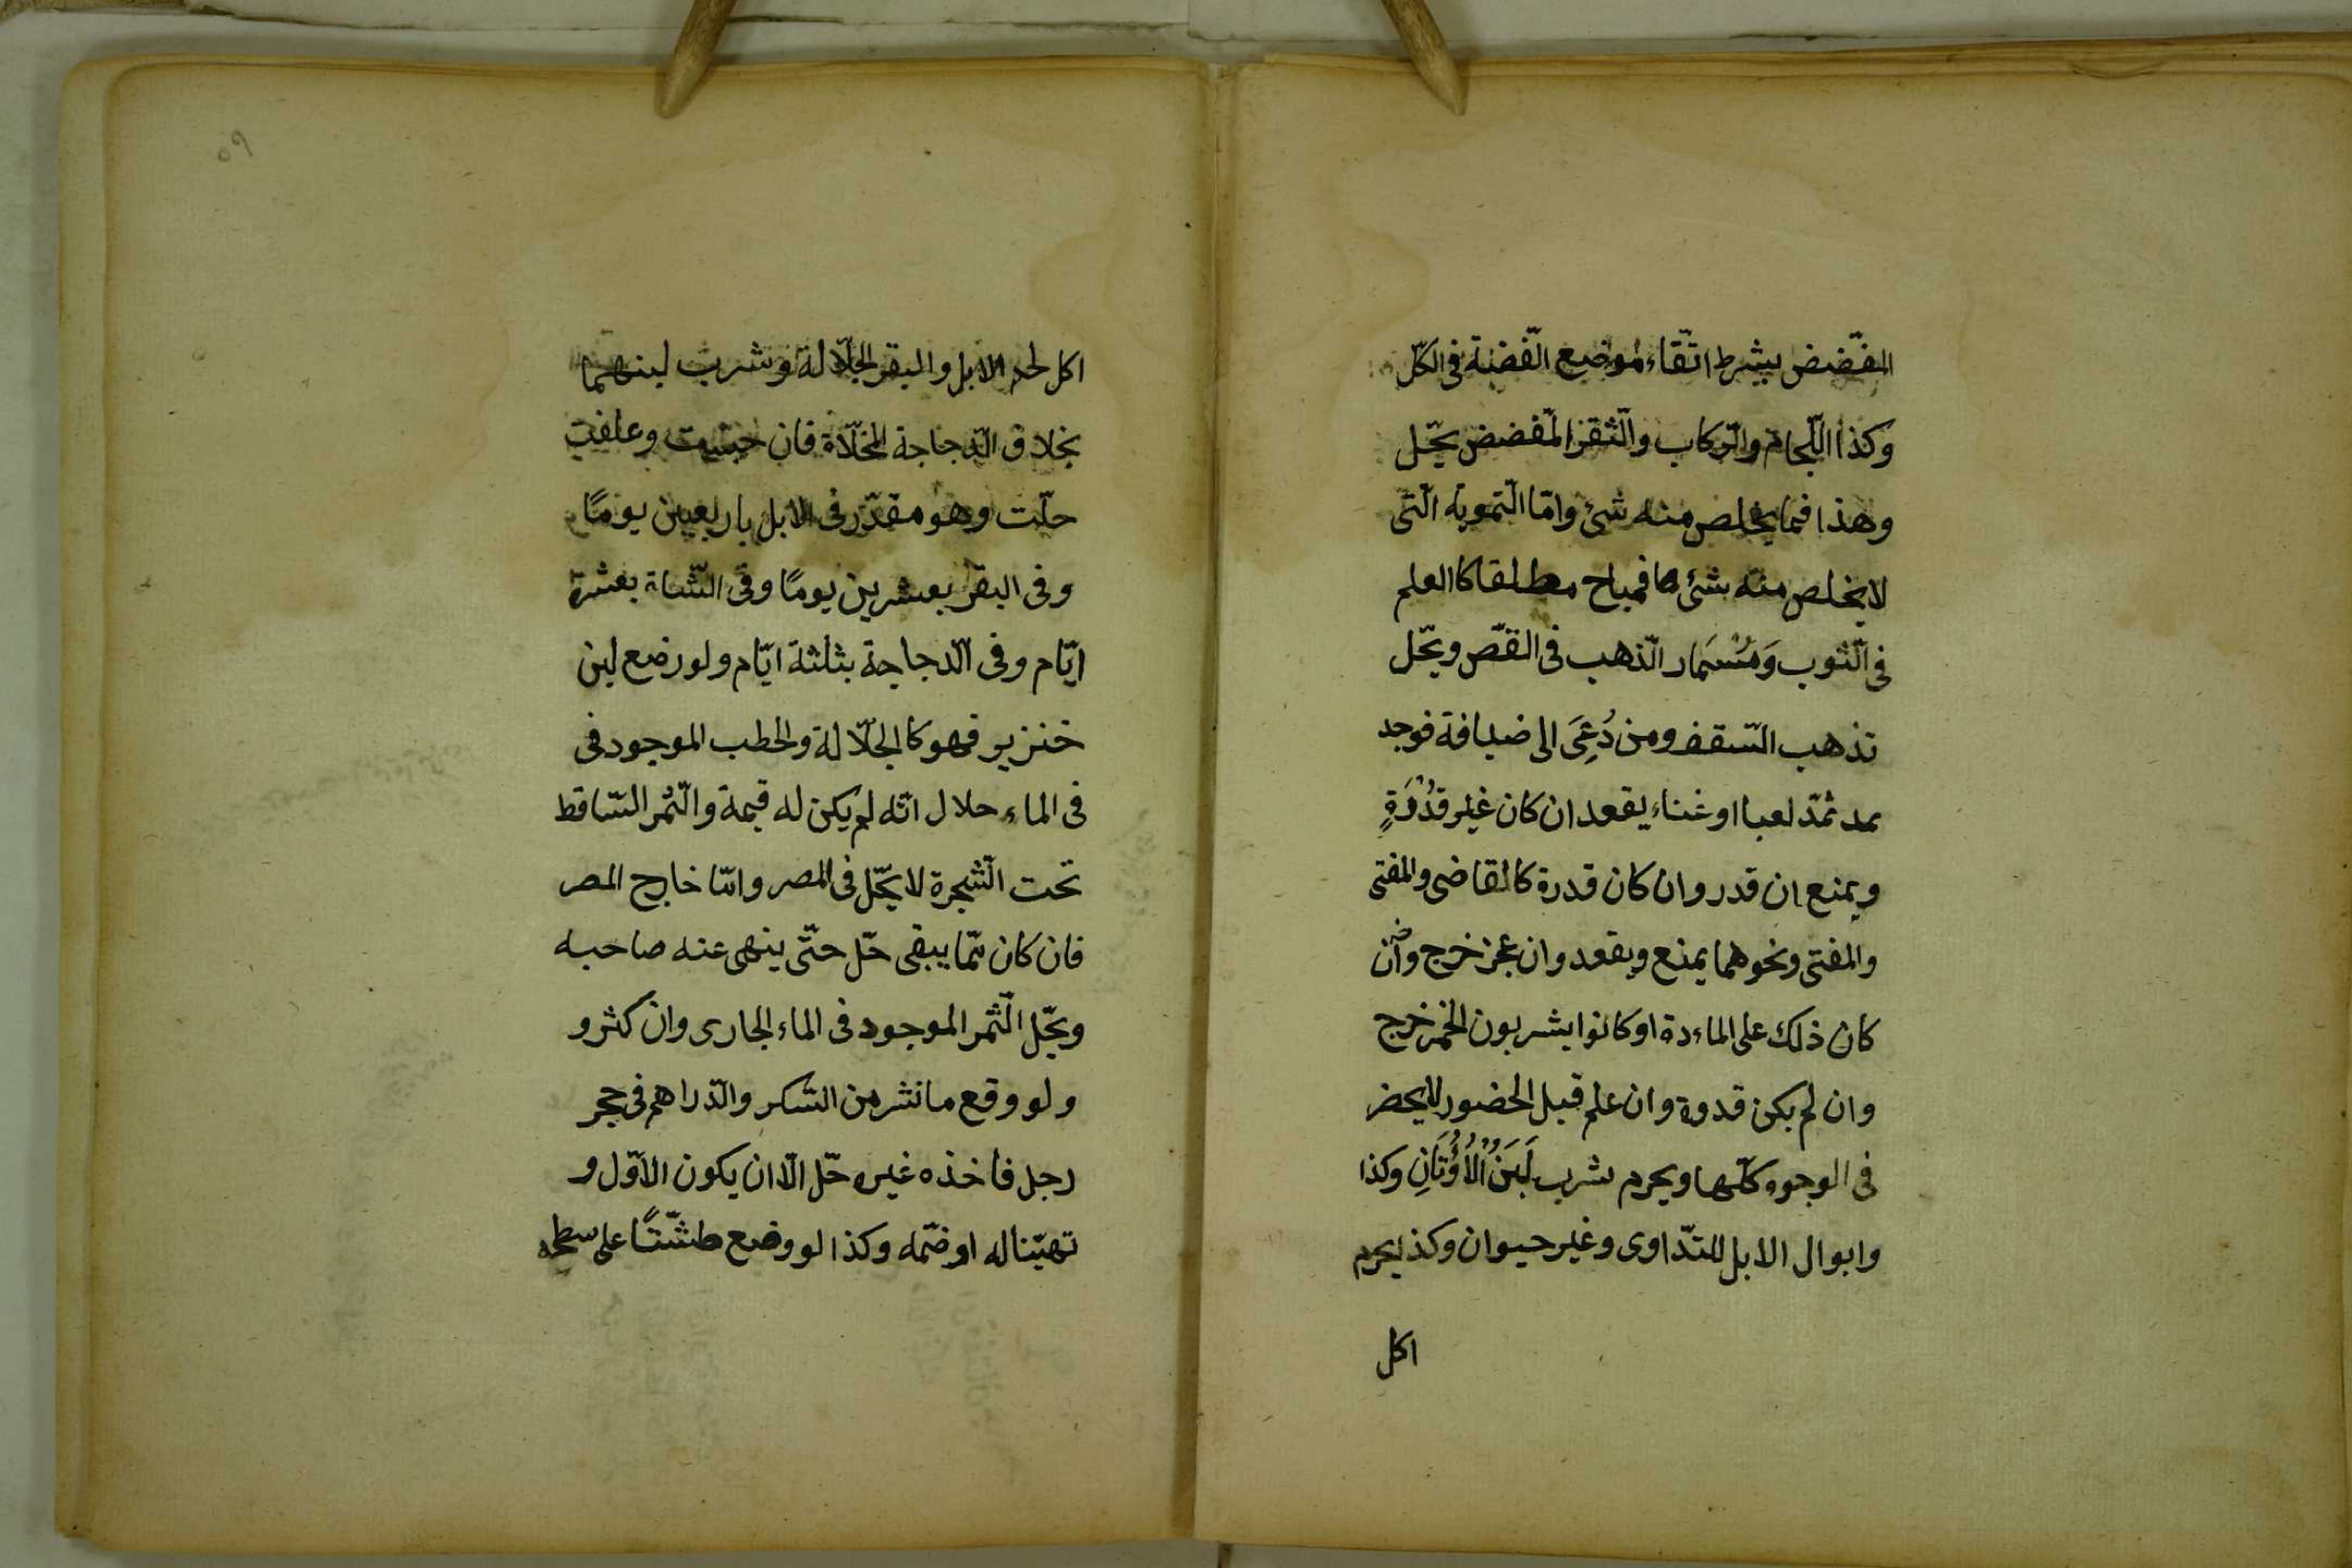 المفضّض بشرط اتّقاء موضع الفضّة فى الكلّ
وكذا اللّجام والرّكاب والثّقر المفضض يحّل
وهذا فيما يخلص منه شئ وامّا التّمويه الّتى
لا يخلص منه بشئ فمباح مطلقا كالعلم
فى الثّوب وَمُسْمَار الّذهب فى الفّص ويحّل
تذهب السّقف ومن دُعِىَ الى ضيافة فوجد
ثمّة لعبا او غناء يقعد ان كان غير قدْوَةٍ
ويمنع ان قدر وان كان قدرة كالقاضى والمفتى
والمفتى ونحوهما يمنع ويقعد وان عجز خرج وان
كان ذلك على الماءدة او كانوا يشربون الخمر خرج
وان لم يكن قدوة وان علم قبل الحضور لا يحضر
فى الوجوه كلّها ويحرم شرب لَبَنُ الْاُوتَانِ وكذا
وابوال الابل للتّداوى وغير حيوان وكذا يحرم
اكل
٥٩
اكل لحم الابل والبقر الجلّالة وشرب لبنهما
بخلاف الدّجاجة المخلّاة فان حبست وعلفت
حلّت وهو مقدّر فى الابل باربعين يومًا
وفى البقر بعشرين يومًا وفى الشّاة بعشرة
ايّام وفى الّدجاجة بثلثة ايّام ولو رضع لبن
خنزير فهو كالجلّالة والحطب الموجود فى
فى الماء حلال انّه لم يكن له قيمة والثّمر السّاقط
تحت الّشجرة لا يحّل فى المصر وامّا خارج المصر
فان كان ممّا يبقى حّل حتّى ينهى عنه صاحبه
ويحّل الّثمر الموجود فى الماء الجارى وان كثر و
ولو وقع ما نثر من السّكر والدّراهم فى حجر
رجل فاخذه غيره حّل الّا ان يكون الاّول و
تهيّئا له او ضمّه وكذا لو وضع طشّتًا على سطحه